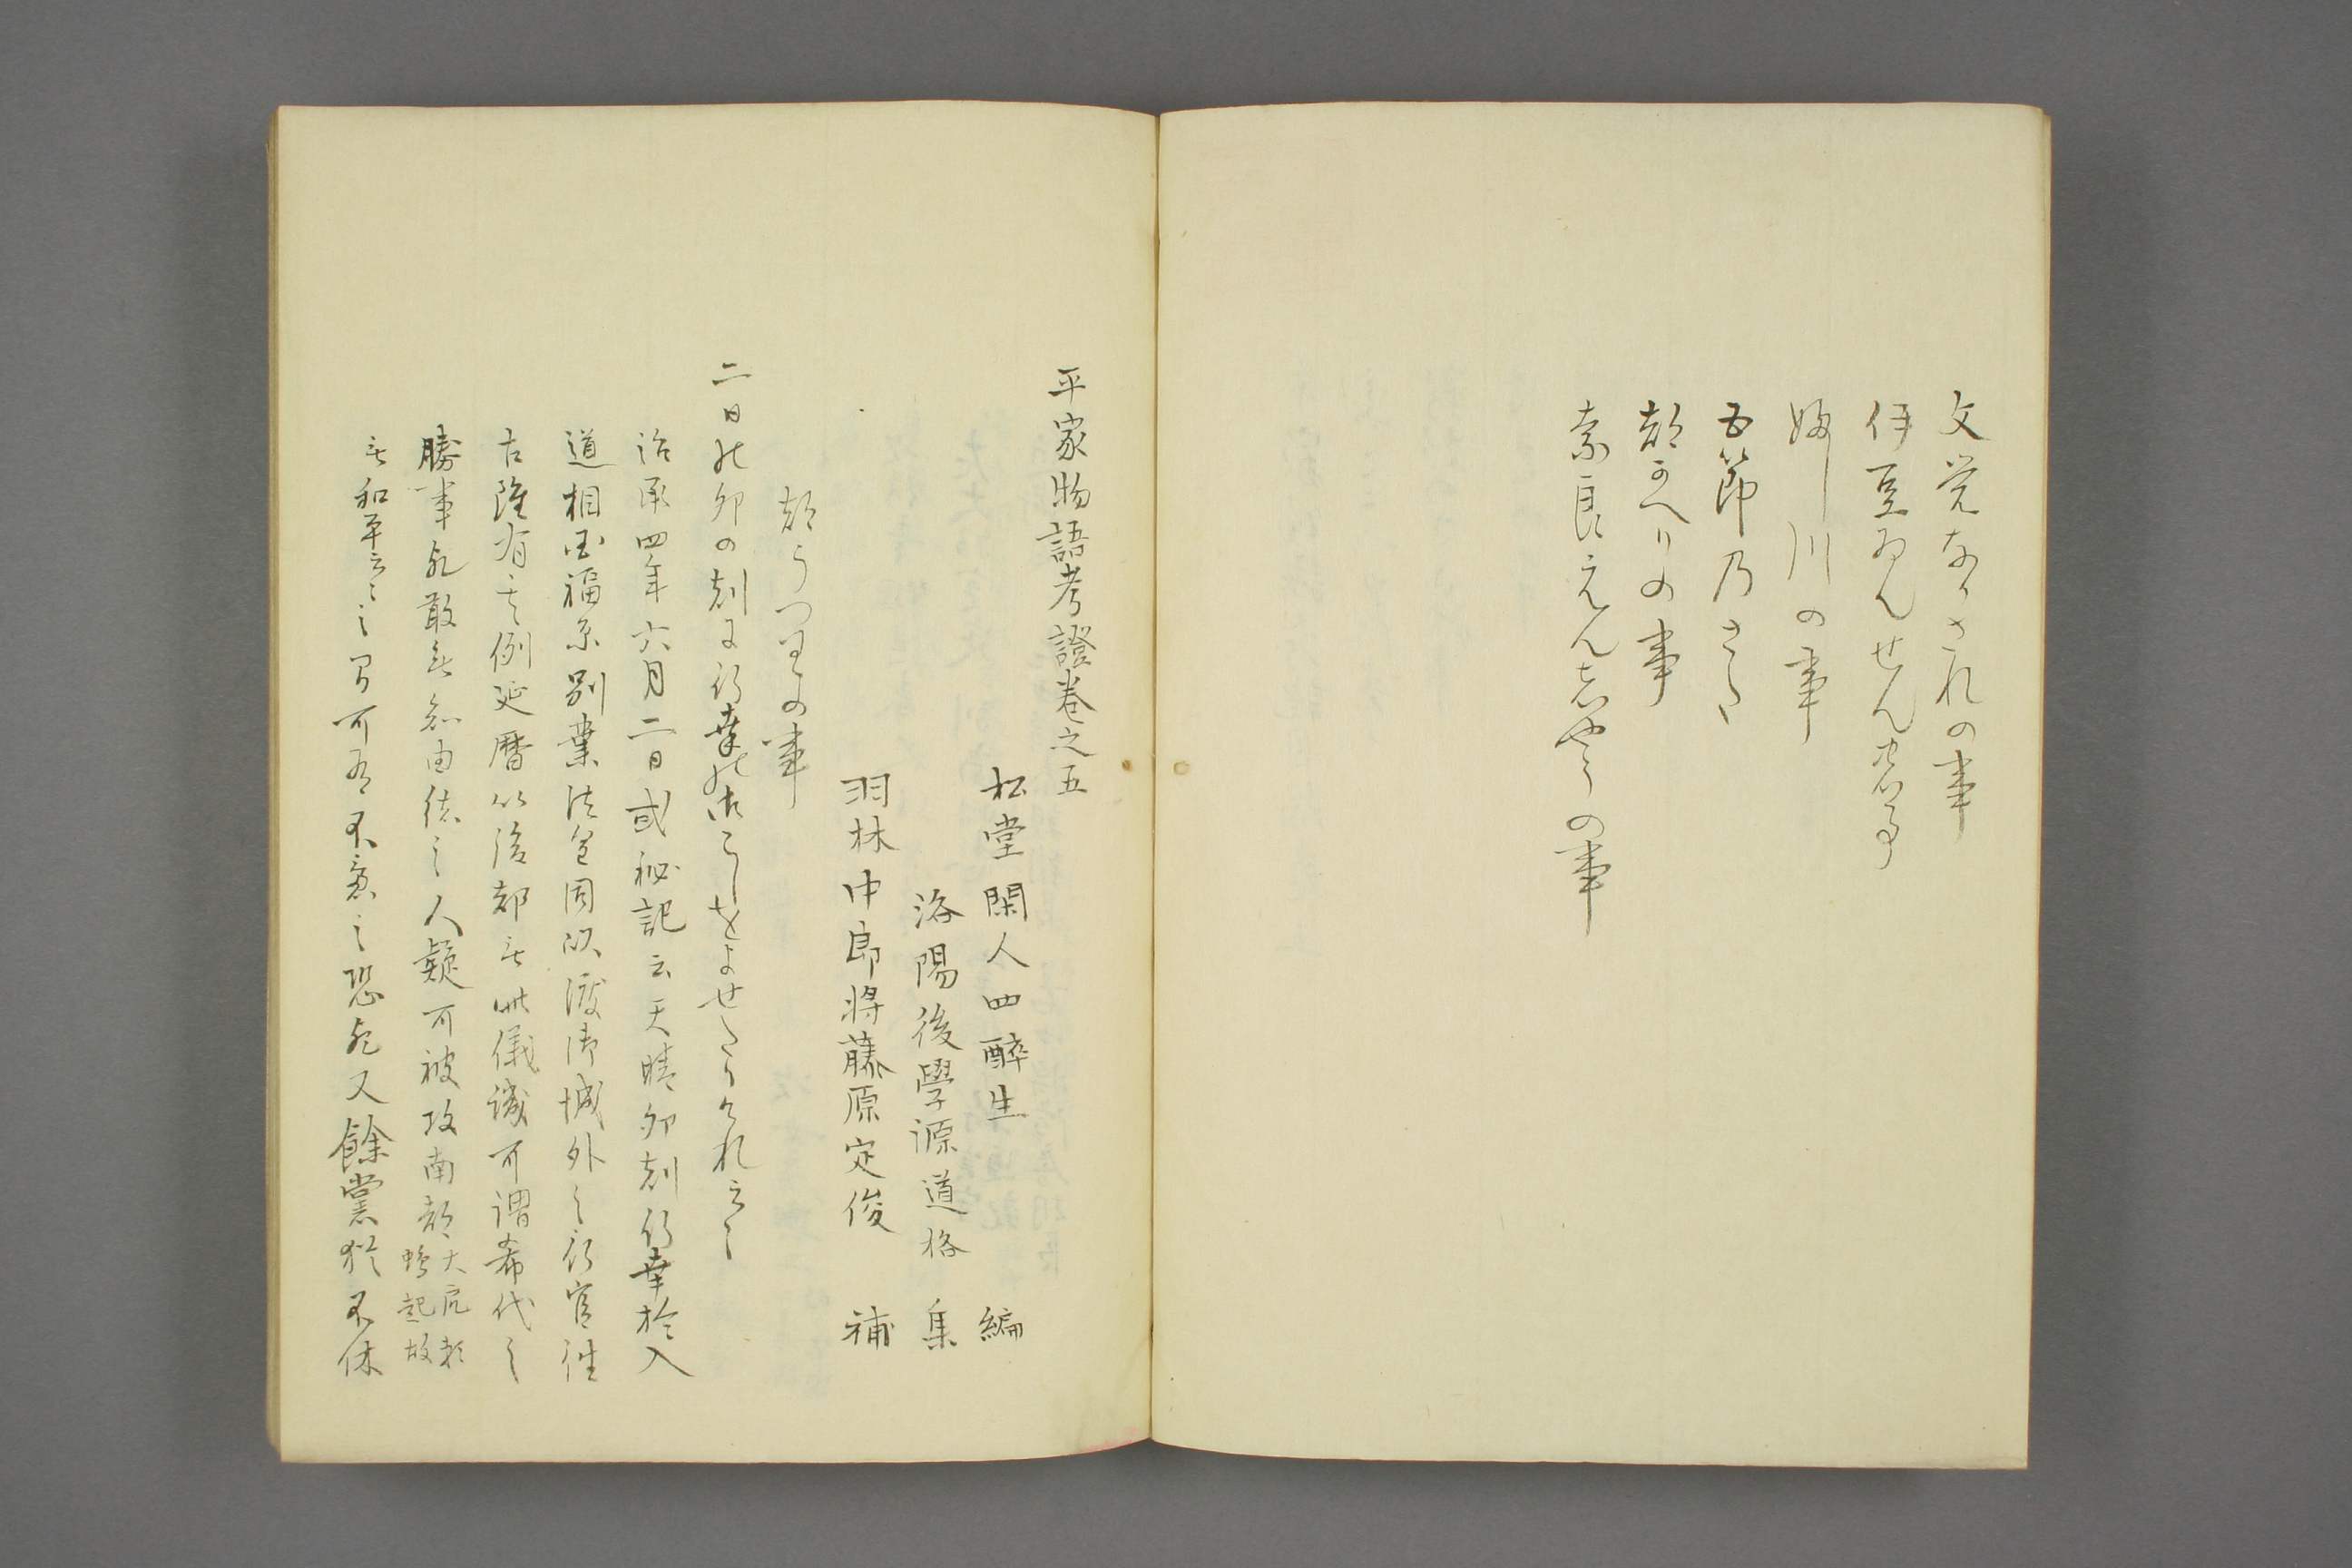 文覚なかされの事
伊豆ゐんせんの事
ふし川の事
五節乃さた
都かへりの事
奈良えんしやうの事
平家物語考證巻之五
松堂閑人四醉生 編
洛陽後學源道格 集
羽林中郎將藤原定俊 補
都うつりの事
二日の卯の刻に行幸の御こしをよせたりけれは云々
治承四年六月二日或秘記云天晴卯刻行幸於入
道相国福原別業法皇同以渡御城外之行宮往
古雖有其例延暦以後都無此儀誠可謂希代之
勝事歟敢無知由緒之人疑可被攻南都
大衆頗
蜂起故
無和平云々之間可有不意之恐歟又餘黨猶不休